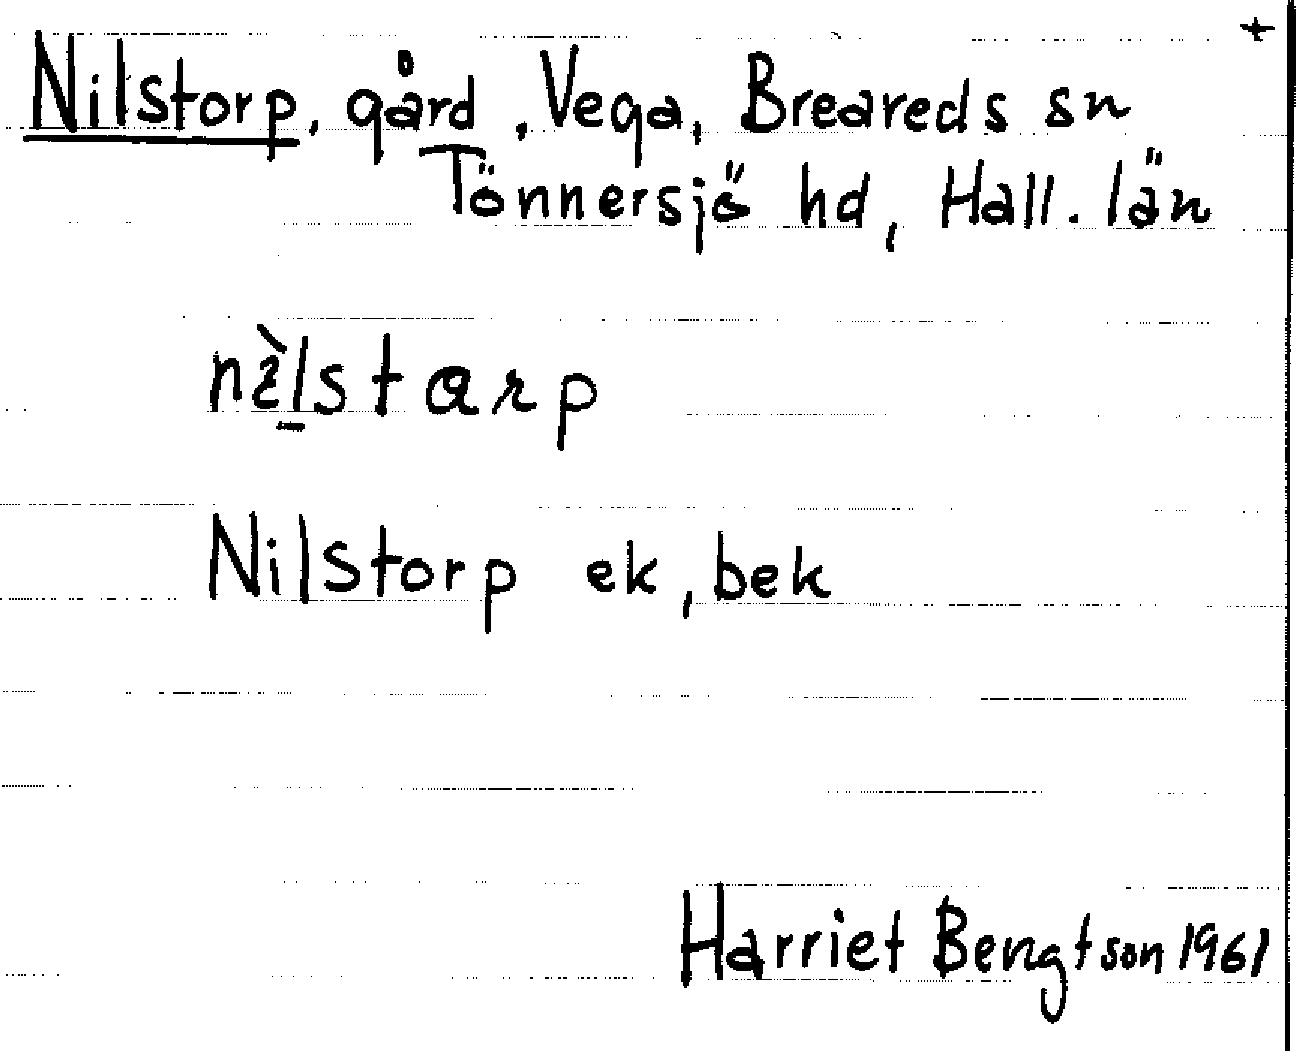 +
Nilstorp, gård, Vega, Breareds sn
Tönnersjö hd, Hall. län
Nilstorp ek, bek
Harriet Bengtson 1961